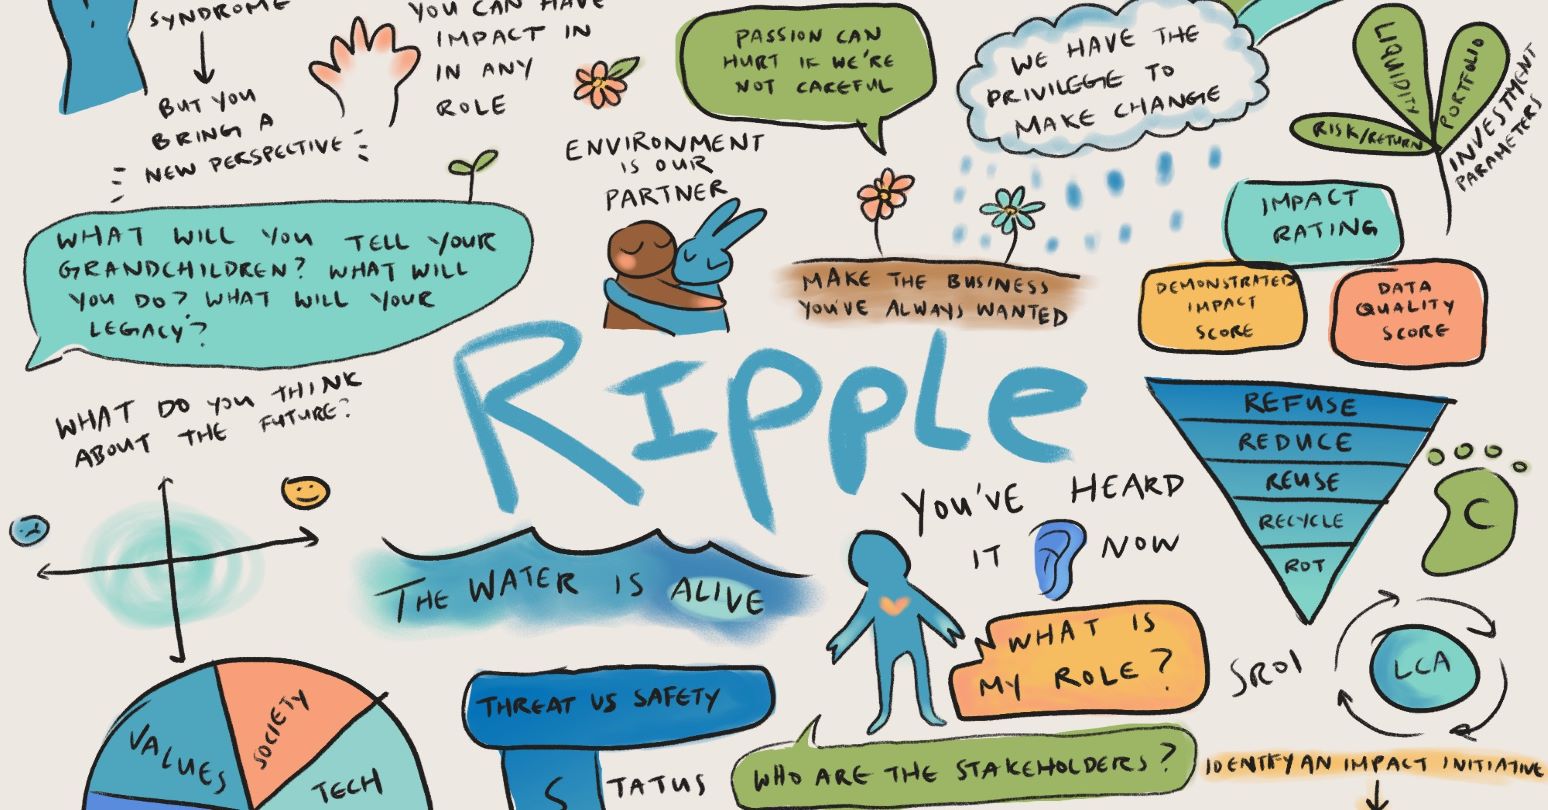 SYNDROME
BUT YOU
BRING A
NEW PERSPECTIVE
YOU CAN HAVE
IMPACT IN
IN ANY
ROLE
PASSION CAN
HURT IF WE'RE
NOT CAREFUL
WE HAVE THE
PRIVILEGE TO
MAKE CHANGE
LIQUIDITY
PORTFOLIO
RISK/RETURN
INVESTMENT
PARAMETERS
ENVIRONMENT
IS OUR
PARTNER
WHAT WILL YOU TELL YOUR
GRANDCHILDREN? WHAT WILL
YOU DO? WHAT WILL YOUR
LEGACY?
MAKE THE BUSINESS
YOU'VE ALWAYS WANTED
IMPACT
RATING
DEMONSTRATED
IMPACT
SCORE
DATA
QUALITY
SCORE
Ripple
WHAT DO YOU THINK
ABOUT THE FUTURE?
REFUSE
REDUCE
REUSE
RECYCLE
ROT
C
YOU'VE HEARD
IT NOW
THE WATER IS ALIVE
WHAT IS
MY ROLE?
SROI
LCA
VALUES
SOCIETY
TECH
THREAT VS SAFETY
STATUS
WHO ARE THE STAKEHOLDERS?
IDENTIFY AN IMPACT INITIATIVE